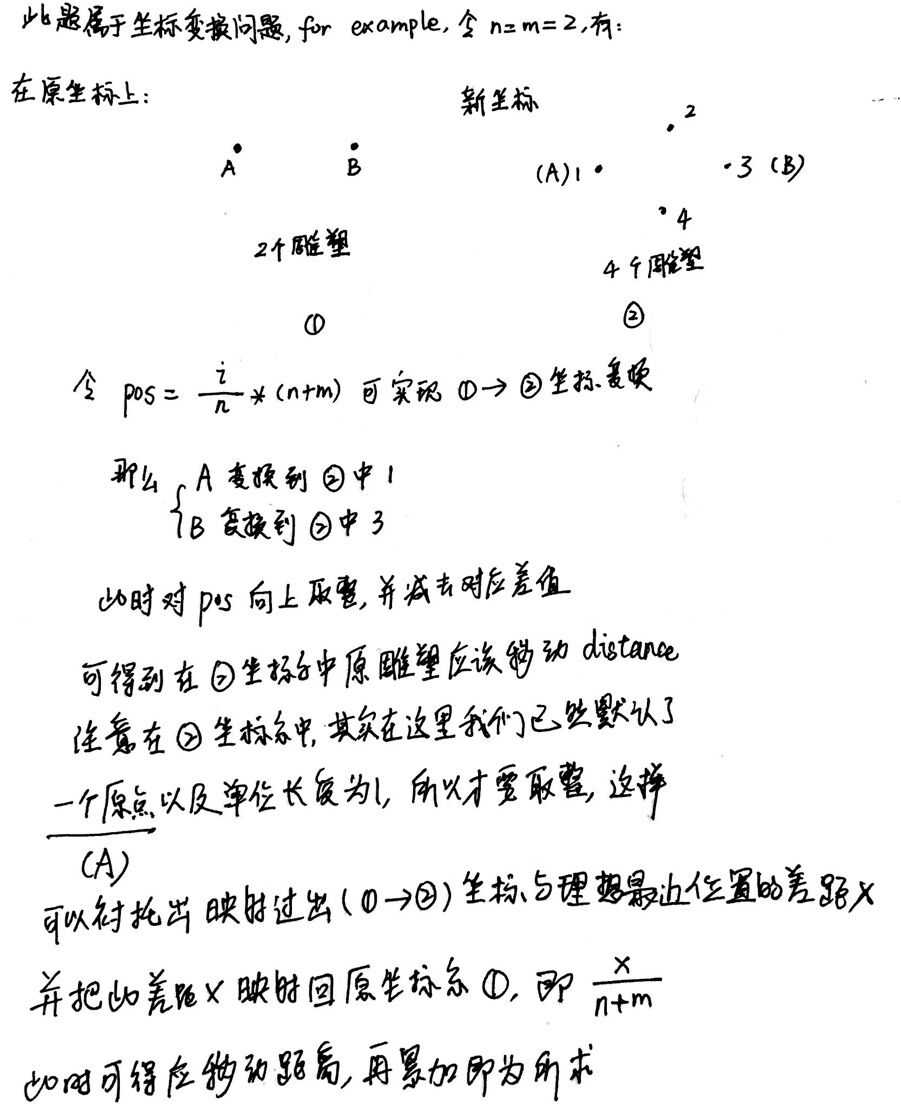 此题属于坐标变换问题, for example, 令 n=m=2, 有:
在原坐标上:
新坐标
2
A
B
(A)1
3 (B)
4
2个雕塑
4个雕塑
①
②
令 pos = i/n * (n+m) 可实现 ①→②坐标变换
那么 { A 变换到 ②中 1
B 变换到 ②中 3
此时对 pos 向上取整, 并减去对应差值
可得到在②坐标系中原雕塑应该移动 distance
注意在②坐标系中, 其实在这里我们已然默认了
一个原点以及单位长度为1, 所以才要取整, 这样
(A)
可以衬托出 映射过出(①→②)坐标与理想最近位置的差距x
并把此差距x 映射回原坐标系①, 即 x/n+m
此时可得应移动距离, 再累加即为所求